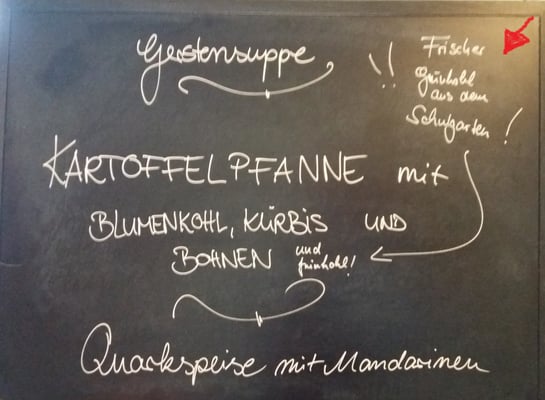 Gerstensuppe
!! Frischer
Grünkohl
aus dem
Schulgarten!
KARTOFFELPFANNE mit
BLUMENKOHL, KÜRBIS UND
BOHNEN und
Grünkohl!
Quarkspeise mit Mandarinen